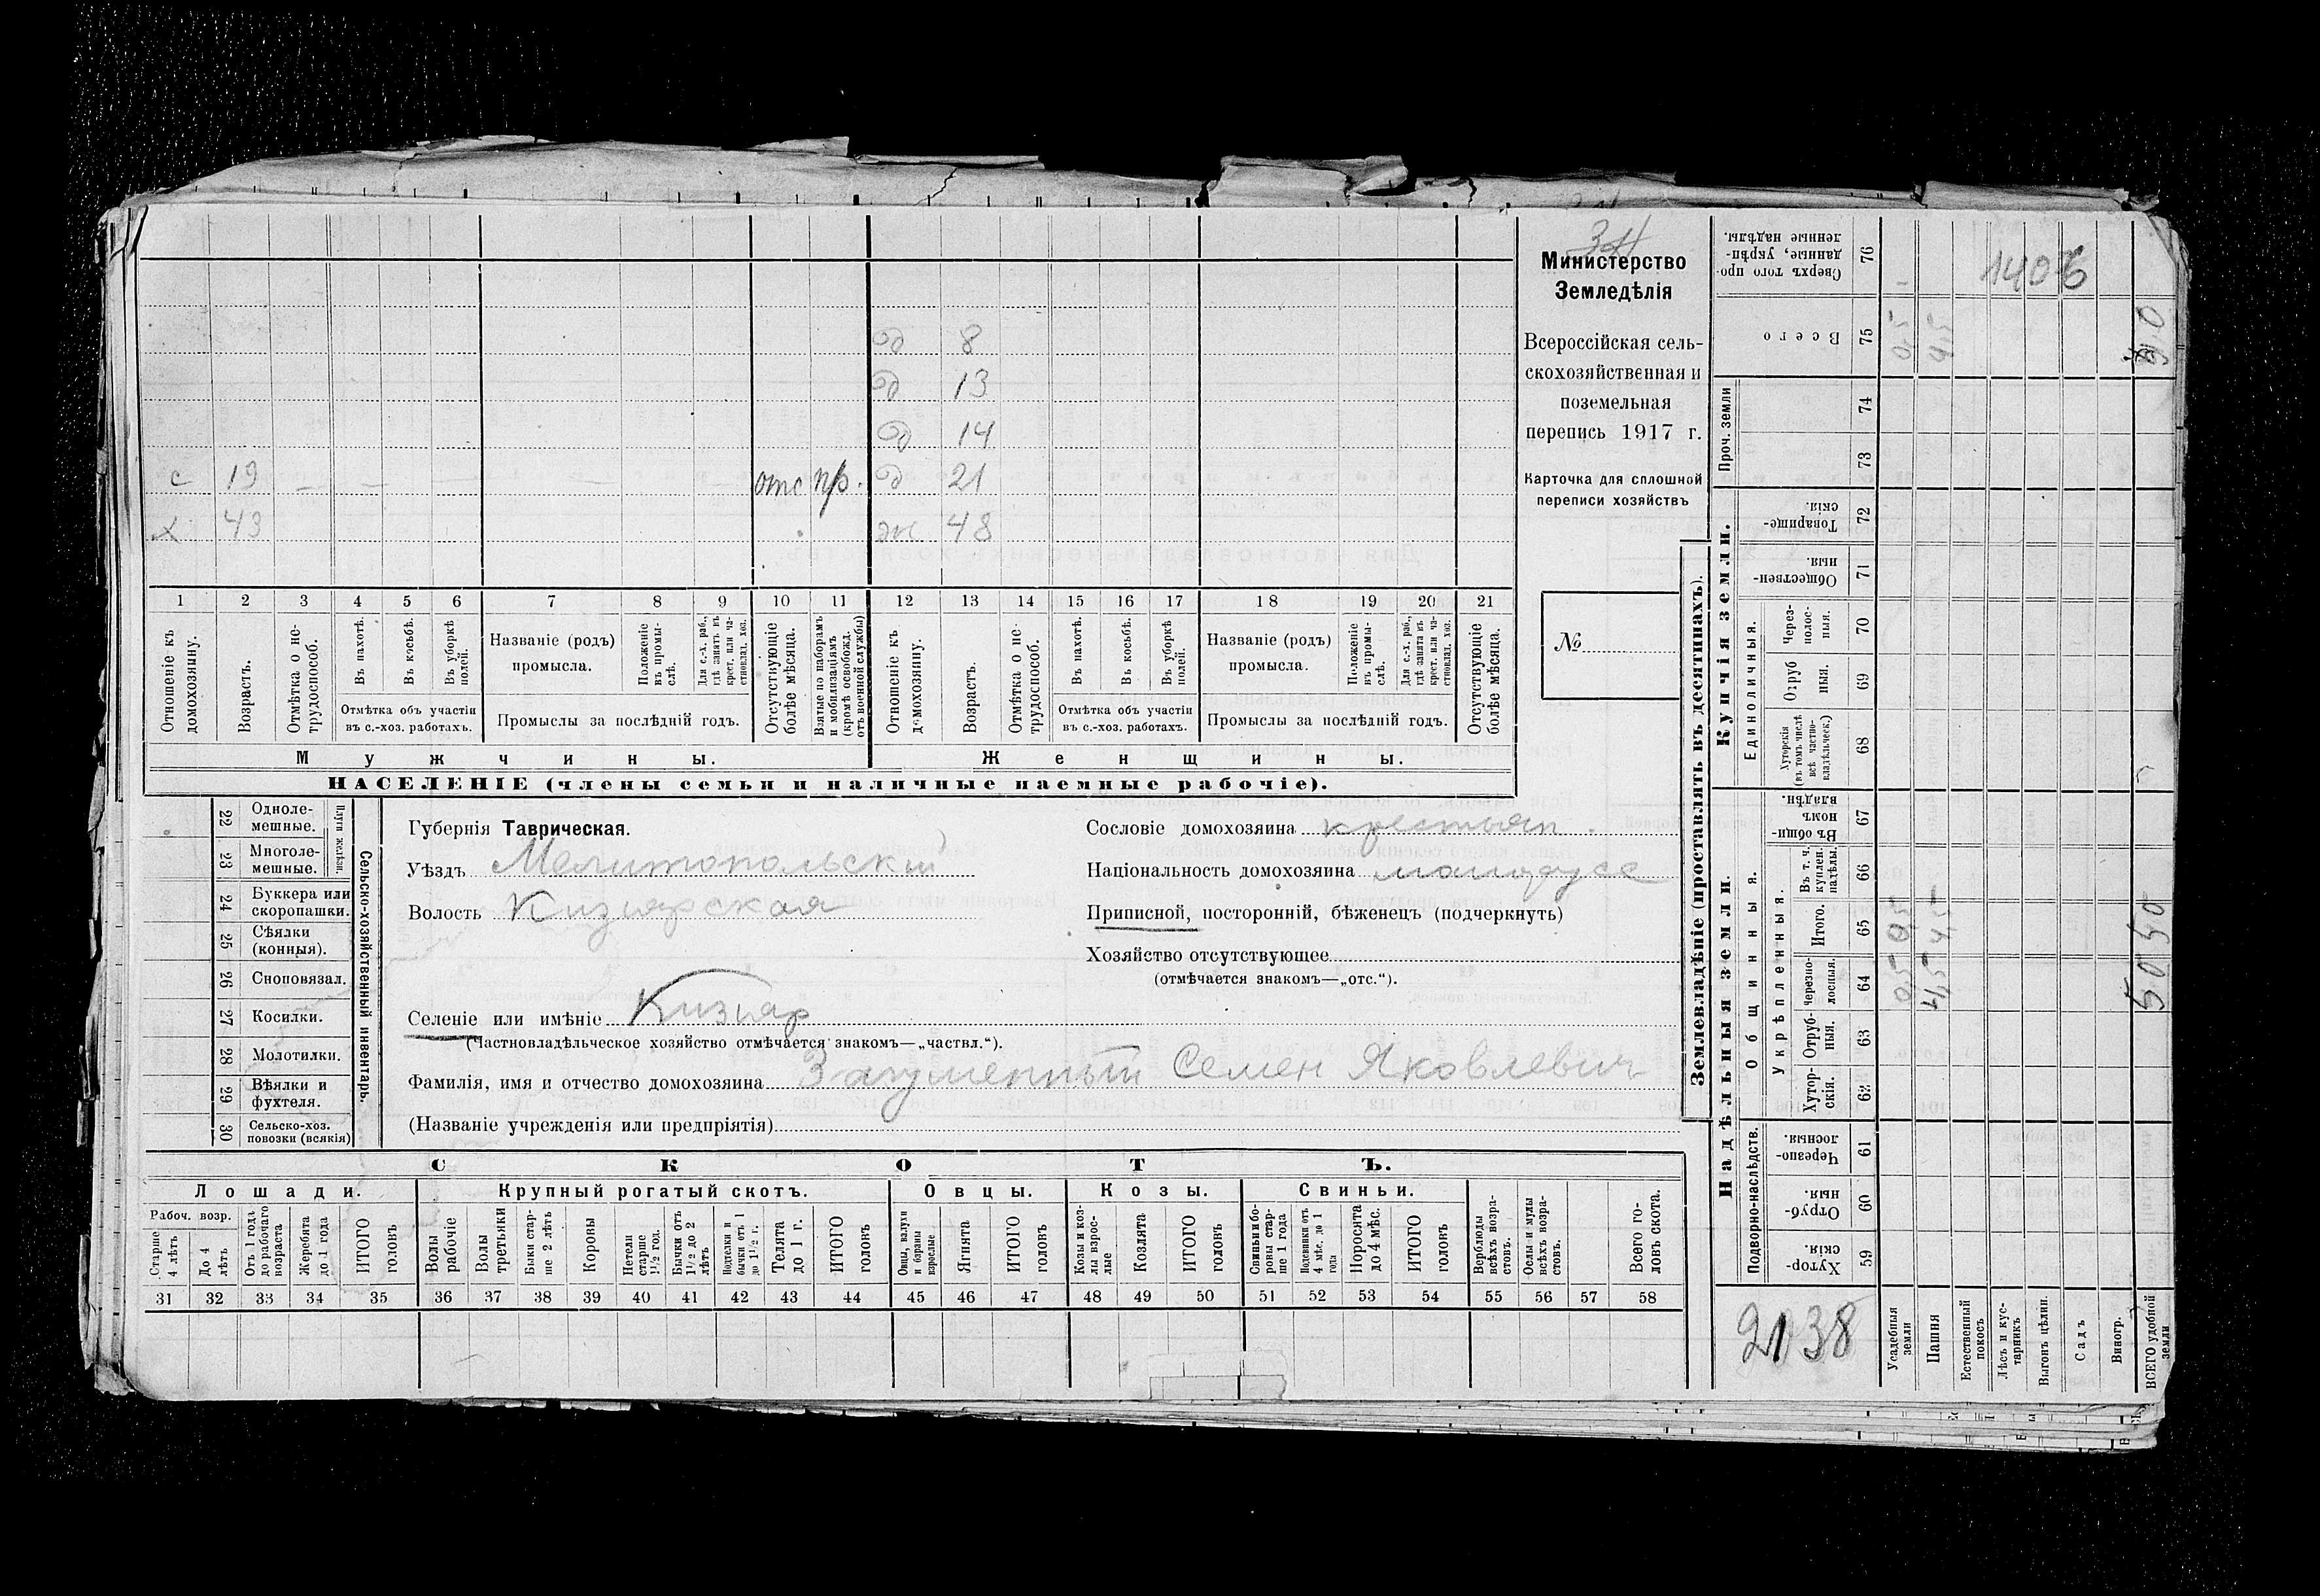 34
Министерство
Земледѣлія
Всероссійская сель-
скохозяйственная и
поземельная
перепись 1917 г.
Карточка для сплошной
переписи хозяйствъ
№
д 8
д 13
д 14
с 19 — — — отс пр. д 21
х 43 ж 48
1 2 3 4 5 6 7 8 9 10 11 12 13 14 15 16 17 18 19 20 21
Отношеніе къ домохозяину.
Возрастъ.
Отмѣтка о не-трудоспособ.
Въ пахотѣ.
Въ косьбѣ.
Въ уборкѣ полей.
Отмѣтка объ участіи
въ с.-хоз. работахъ.
Названіе (родъ)
промысла.
Положеніе въ промы-слѣ.
Для с.-х. раб., гдѣ занятъ въ крест. или ча-стновлад. хоз.
Промыслы за послѣдній годъ.
Отсутствующіе болѣе мѣсяца.
Взятые по наборамъ и мобилизаціямъ (кромѣ освобожд. отъ военной службы)
Отношеніе къ домохозяину.
Возрастъ.
Отмѣтка о не-трудоспособ.
Въ пахотѣ.
Въ косьбѣ.
Въ уборкѣ полей.
Отмѣтка объ участіи
въ с.-хоз. работахъ.
Названіе (родъ)
промысла.
Положеніе въ промы-слѣ.
Для с.-х. раб., гдѣ занята въ крест. или ча-стновлад. хоз.
Промыслы за послѣдній годъ.
Отсутствующіе болѣе мѣсяца.
Мужчины.
Женщины.
НАСЕЛЕНІЕ (члены семьи и наличные наемные рабочіе).
22 Одноле-мешные.
23 Многоле-мешные.
Плуги желѣзн.
24 Буккера или скоропашки.
25 Сѣялки (конныя).
26 Сноповязал.
27 Косилки.
28 Молотилки.
29 Вѣялки и фухтеля.
30 Сельско-хоз. повозки (всякія)
Сельско-хозяйственный инвентарь.
Губернія Таврическая.
Уѣздъ Мелитопольскій
Волость Кизиярская
Селеніе или имѣніе Кизияр
(Частновладѣльческое хозяйство отмѣчается знакомъ—„частвл.“).
Фамилія, имя и отчество домохозяина Загуменный Семен Яковлевич
(Названіе учрежденія или предпріятія)
Сословіе домохозяина крестьян.
Національность домохозяина малорусс
Приписной, посторонній, бѣженецъ (подчеркнуть)
Хозяйство отсутствующее
(отмѣчается знакомъ—„отс.“).
СКОТЪ.
Лошади.
Крупный рогатый скотъ.
Овцы.
Козы.
Свиньи.
Рабоч. возр.
Старше 4 лѣтъ
До 4 лѣтъ
Отъ 1 года до рабочаго возраста
Жеребята до 1 года
ИТОГО головъ
Волы рабочіе
Волы третьяки
Быки стар-ше 2 лѣтъ
Коровы
Нетели старше 1½ год.
Бычки отъ 1½ до 2 лѣтъ
Подтелки и бычки отъ 1 до 1½ г.
Телята до 1 г.
ИТОГО головъ
Овцы, валухи и бараны взрослые
Ягнята
ИТОГО головъ
Козы и коз-лы взрос-лые
Козлята
ИТОГО головъ
Свиньи и бо-ровы стар-ше 1 года
Подсвинки отъ 4 мѣс. до 1 года
Поросята до 4 мѣс.
ИТОГО головъ
Верблюды всѣхъ возра-стовъ.
Ослы и мулы всѣхъ возра-стовъ.
Всего го-ловъ скота.
31 32 33 34 35 36 37 38 39 40 41 42 43 44 45 46 47 48 49 50 51 52 53 54 55 56 57 58
Землевладѣніе (проставлять въ десятинахъ).
Сверхъ того про-данные, укрѣп-ленные надѣлы. 76
1406
Всего 75 0,5 4,5
Проч. земли 74
73
Купчія земли.
Товарище-скія. 72
Обществен-ныя 71
Единоличныя.
Через-полос-ныя. 70
Отруб ныя. 69
Хуторскія (въ томъ числѣ всѣ частно-владѣльческ.) 68
Надѣльныя земли.
Общинныя.
Въ общин-номъ владѣн. 67
Укрѣпленныя.
Въ т. ч. куплен. надѣлы. 66
Итого. 65 0,5 4,5 50
Черезпо-лосныя. 64 0,5 4,5 50
Отруб-ныя. 63
Хутор-скія. 62
Подворно-наслѣдств.
Черезпо-лосныя. 61
Отруб-ныя. 60
Хутор-скія. 59
2138
Усадебныя земли
Пашня
Естественный покосъ
Лѣсъ и кус-тарникъ
Выгонъ цѣлин.
Садъ
Виногр.
ВСЕГО удобной земли